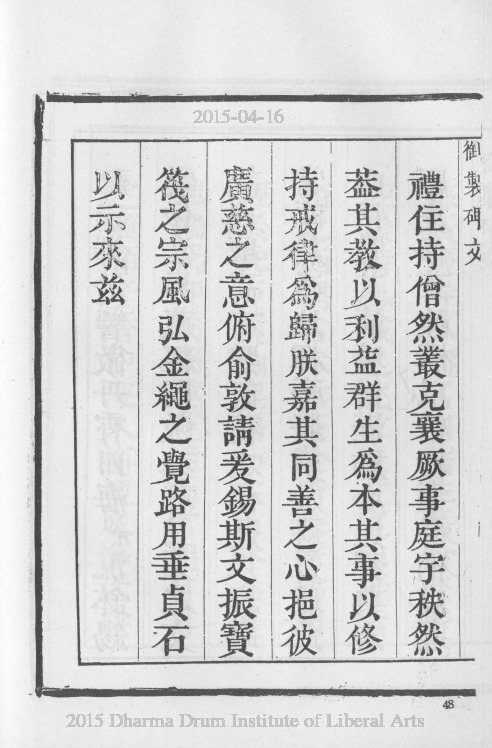 2015-04-16
御製碑文
禮住持僧然叢克襄厥事庭宇秩然
葢其教以利益群生爲本其事以修
持戒律爲歸朕嘉其同善之心挹彼
廣慈之意俯俞敦請爰錫斯文振寶
筏之宗風弘金繩之覺路用垂貞石
以示來兹
48
2015 Dharma Drum Institute of Liberal Arts